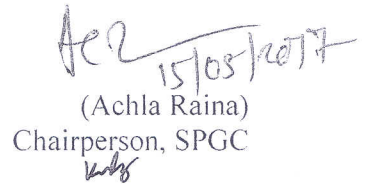 15/05/2017
(Achla Raina)
Chairperson, SPGC